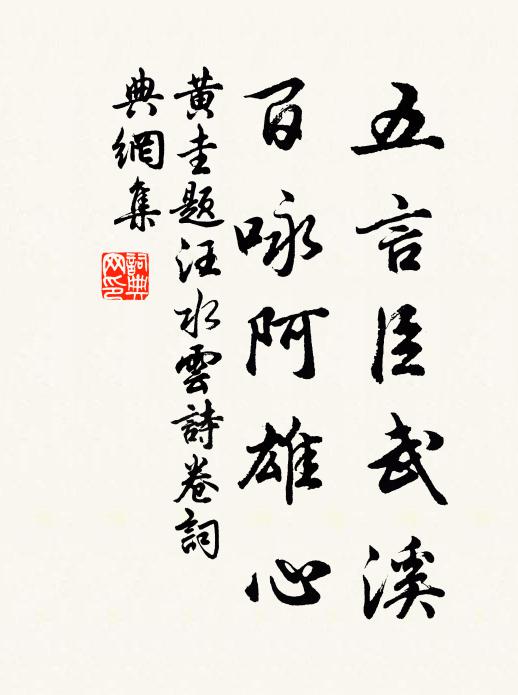 五言臣武溪
百咏阿雄心
黄圭题汪水雲詩卷詞
典網集
詞典網印